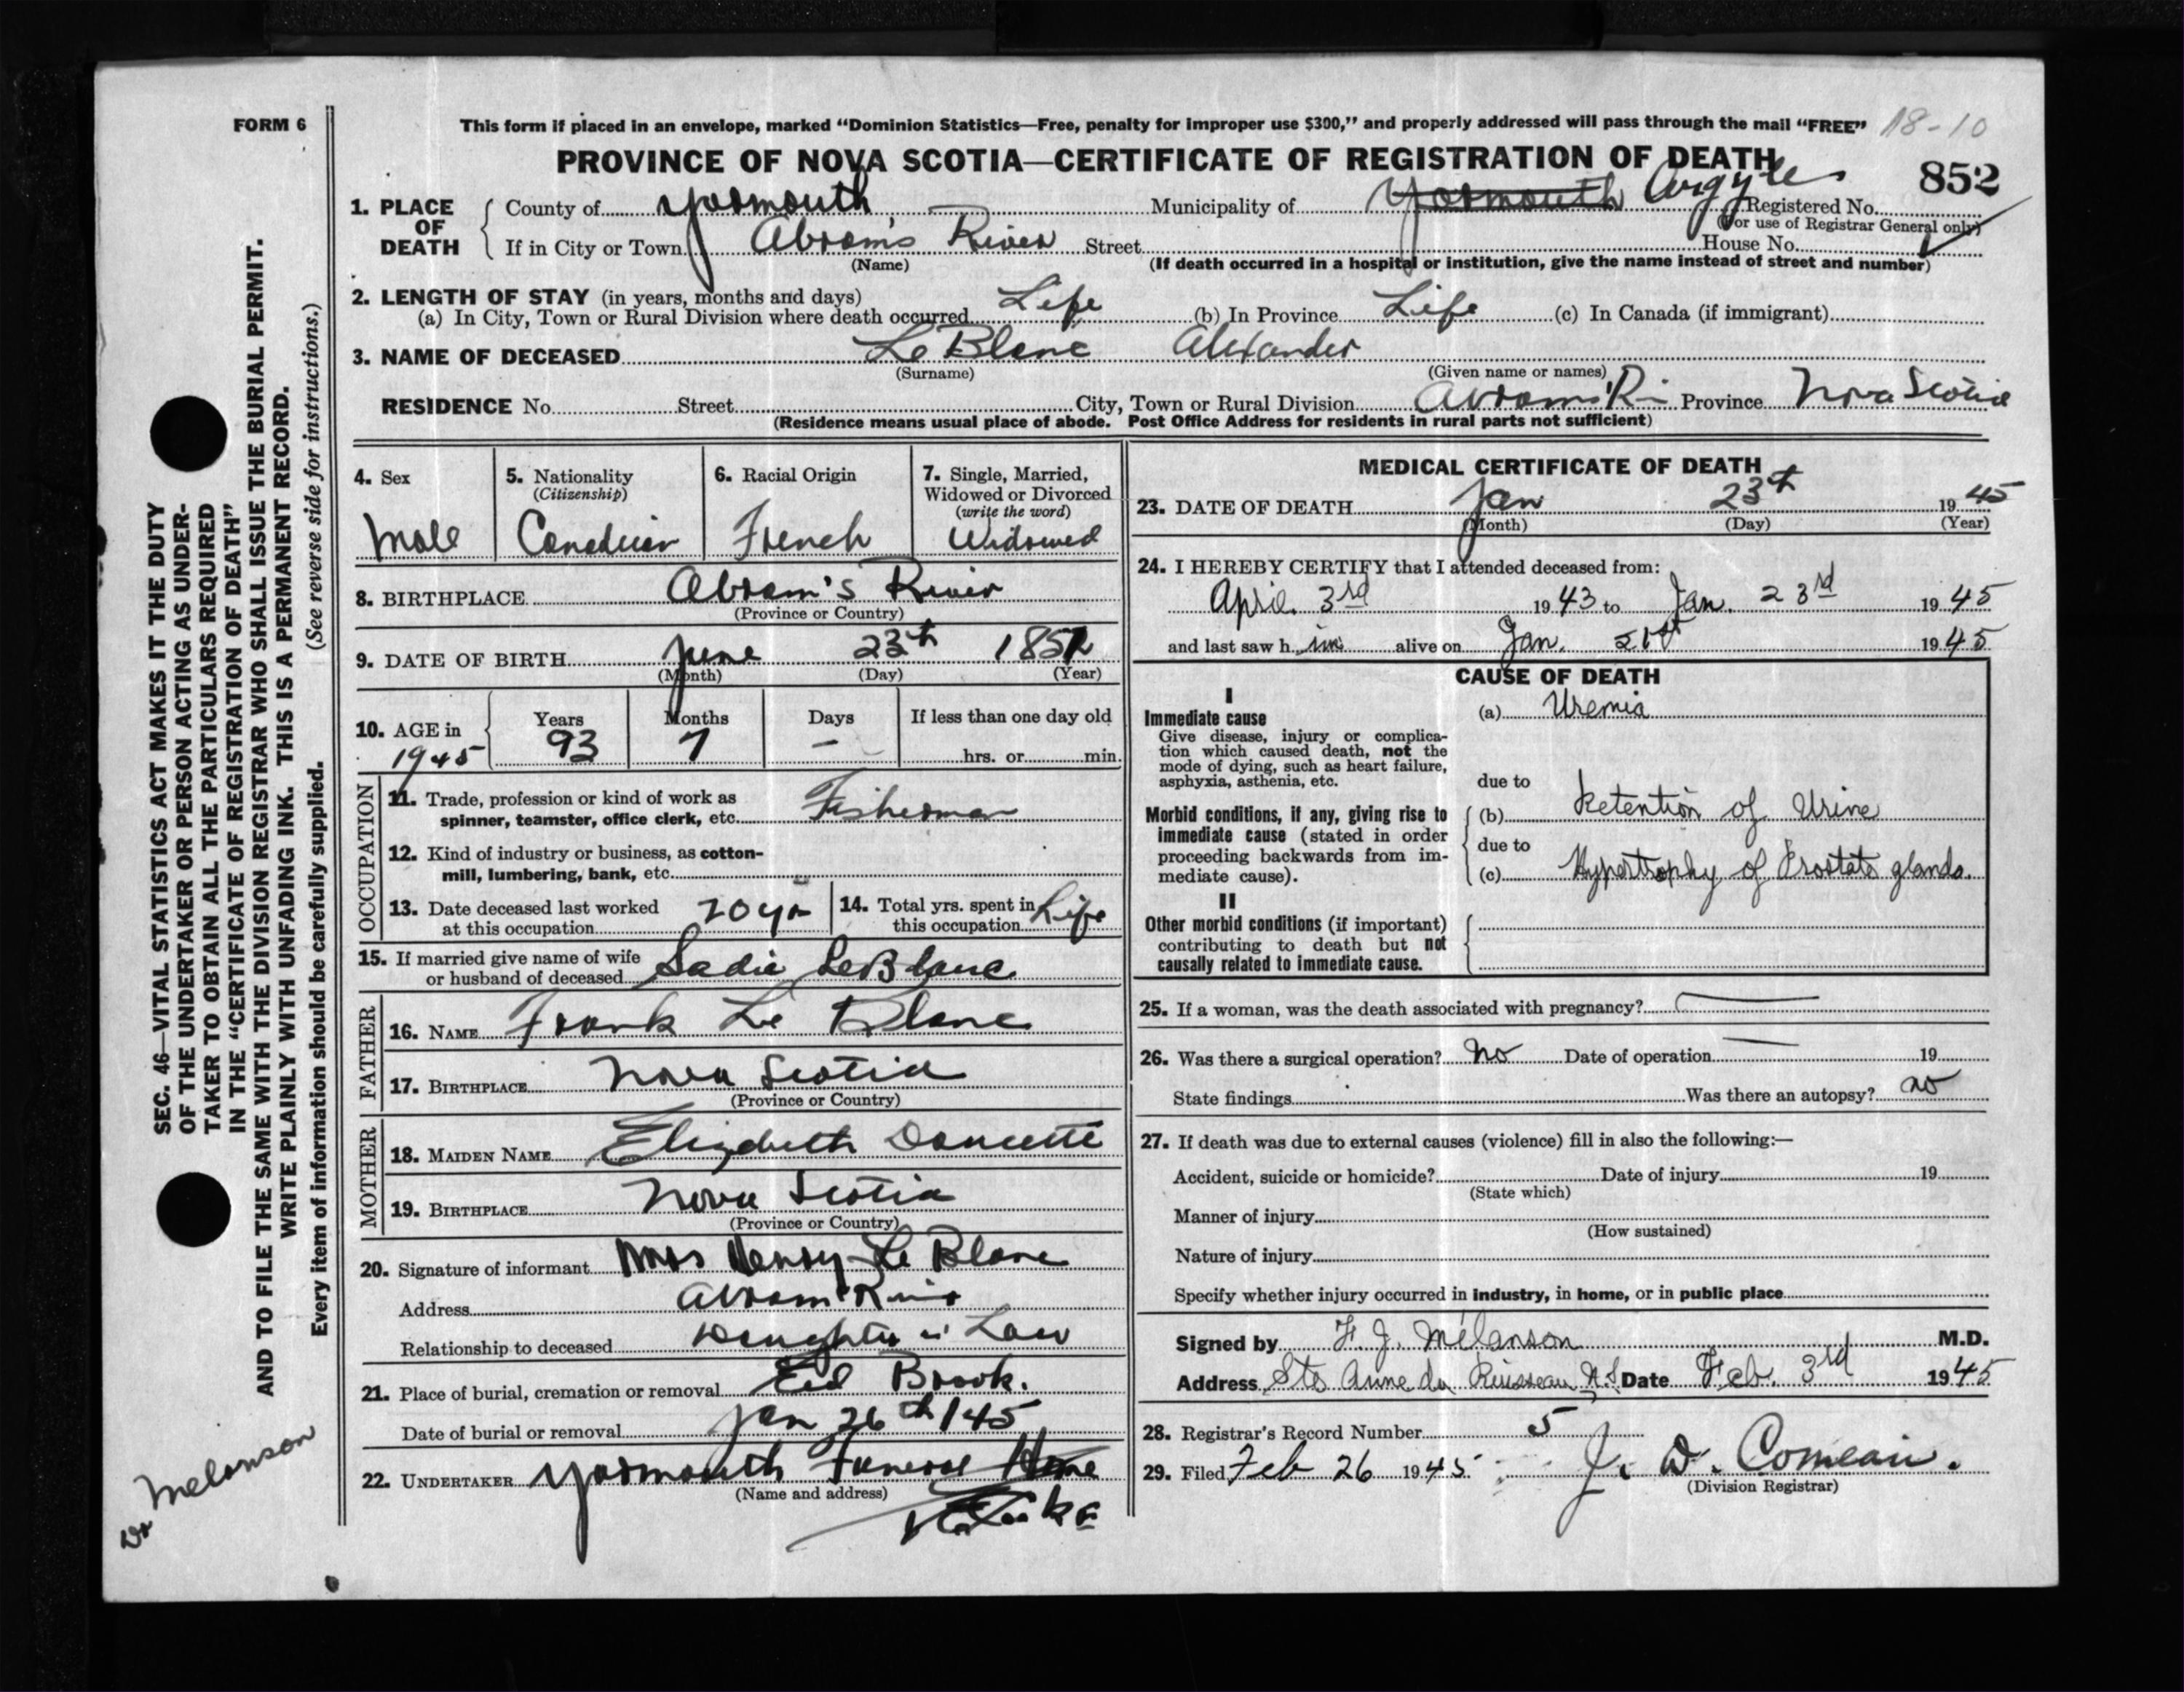 FORM 6
This form if placed in an envelope, marked "Dominion Statistics—Free, penalty for improper use $300," and properly addressed will pass through the mail "FREE" 18-10
PROVINCE OF NOVA SCOTIA—CERTIFICATE OF REGISTRATION OF DEATH
852
1. PLACE OF DEATH
County of Yarmouth Municipality of Yarmouth Argyle Registered No.
(For use of Registrar General only)
If in City or Town Abram's River Street House No.
(Name) (If death occurred in a hospital or institution, give the name instead of street and number)
2. LENGTH OF STAY (in years, months and days)
(a) In City, Town or Rural Division where death occurred Life (b) In Province Life (c) In Canada (if immigrant)
3. NAME OF DECEASED LeBlanc Alexander
(Surname) (Given name or names)
RESIDENCE No. Street City, Town or Rural Division Abram's Ri Province Nova Scotia
(Residence means usual place of abode. Post Office Address for residents in rural parts not sufficient)
4. Sex
Male
5. Nationality
(Citizenship)
Canadian
6. Racial Origin
French
7. Single, Married,
Widowed or Divorced
(write the word)
Widowed
8. BIRTHPLACE Abram's River
(Province or Country)
9. DATE OF BIRTH June 23th
(Month) (Day) (Year)
10. AGE in 1945
Years 93
Months 7
Days —
If less than one day old
hrs. or min.
OCCUPATION
11. Trade, profession or kind of work as
spinner, teamster, office clerk, etc. Fisherman
12. Kind of industry or business, as cotton-
mill, lumbering, bank, etc.
13. Date deceased last worked
at this occupation 20 yrs
14. Total yrs. spent in
this occupation Life
15. If married give name of wife
or husband of deceased Sadie LeBlanc
FATHER
16. NAME Frank Le Blanc
17. BIRTHPLACE Nova Scotia
(Province or Country)
MOTHER
18. MAIDEN NAME Elizabeth Doucette
19. BIRTHPLACE Nova Scotia
(Province or Country)
20. Signature of informant Mrs Henry Le Blanc
Address Abram's River
Relationship to deceased Daughter in Law
21. Place of burial, cremation or removal Eel Brook.
Date of burial or removal Jan 26th/45
22. UNDERTAKER Yarmouth Funeral Home
(Name and address)
MEDICAL CERTIFICATE OF DEATH
23. DATE OF DEATH Jan 23th 1945
(Month) (Day) (Year)
24. I HEREBY CERTIFY that I attended deceased from:
April 3rd 1943 to Jan. 23rd 1945
and last saw h im alive on Jan. 21st 1945
CAUSE OF DEATH
I
Immediate cause
Give disease, injury or complica-
tion which caused death, not the
mode of dying, such as heart failure,
asphyxia, asthenia, etc.
(a) Uremia
due to
Morbid conditions, if any, giving rise to
immediate cause (stated in order
proceeding backwards from im-
mediate cause).
(b) Retention of Urine
due to
(c) Hypertrophy of Prostate glands.
II
Other morbid conditions (if important)
contributing to death but not
causally related to immediate cause.
25. If a woman, was the death associated with pregnancy? —
26. Was there a surgical operation? No Date of operation — 19
State findings Was there an autopsy? no
27. If death was due to external causes (violence) fill in also the following:—
Accident, suicide or homicide? Date of injury 19
(State which)
Manner of injury
(How sustained)
Nature of injury
Specify whether injury occurred in industry, in home, or in public place
Signed by F. J. Melanson M.D.
Address Ste Anne du Ruisseau N.S. Date Feb. 3rd 1945
28. Registrar's Record Number 5
29. Filed Feb 26 1945 J. D. Comeau.
(Division Registrar)
SEC. 46—VITAL STATISTICS ACT MAKES IT THE DUTY
OF THE UNDERTAKER OR PERSON ACTING AS UNDER-
TAKER TO OBTAIN ALL THE PARTICULARS REQUIRED
IN THE "CERTIFICATE OF REGISTRATION OF DEATH"
AND TO FILE THE SAME WITH THE DIVISION REGISTRAR WHO SHALL ISSUE THE BURIAL PERMIT.
WRITE PLAINLY WITH UNFADING INK. THIS IS A PERMANENT RECORD.
Every item of information should be carefully supplied. (See reverse side for instructions.)
Dr Melanson